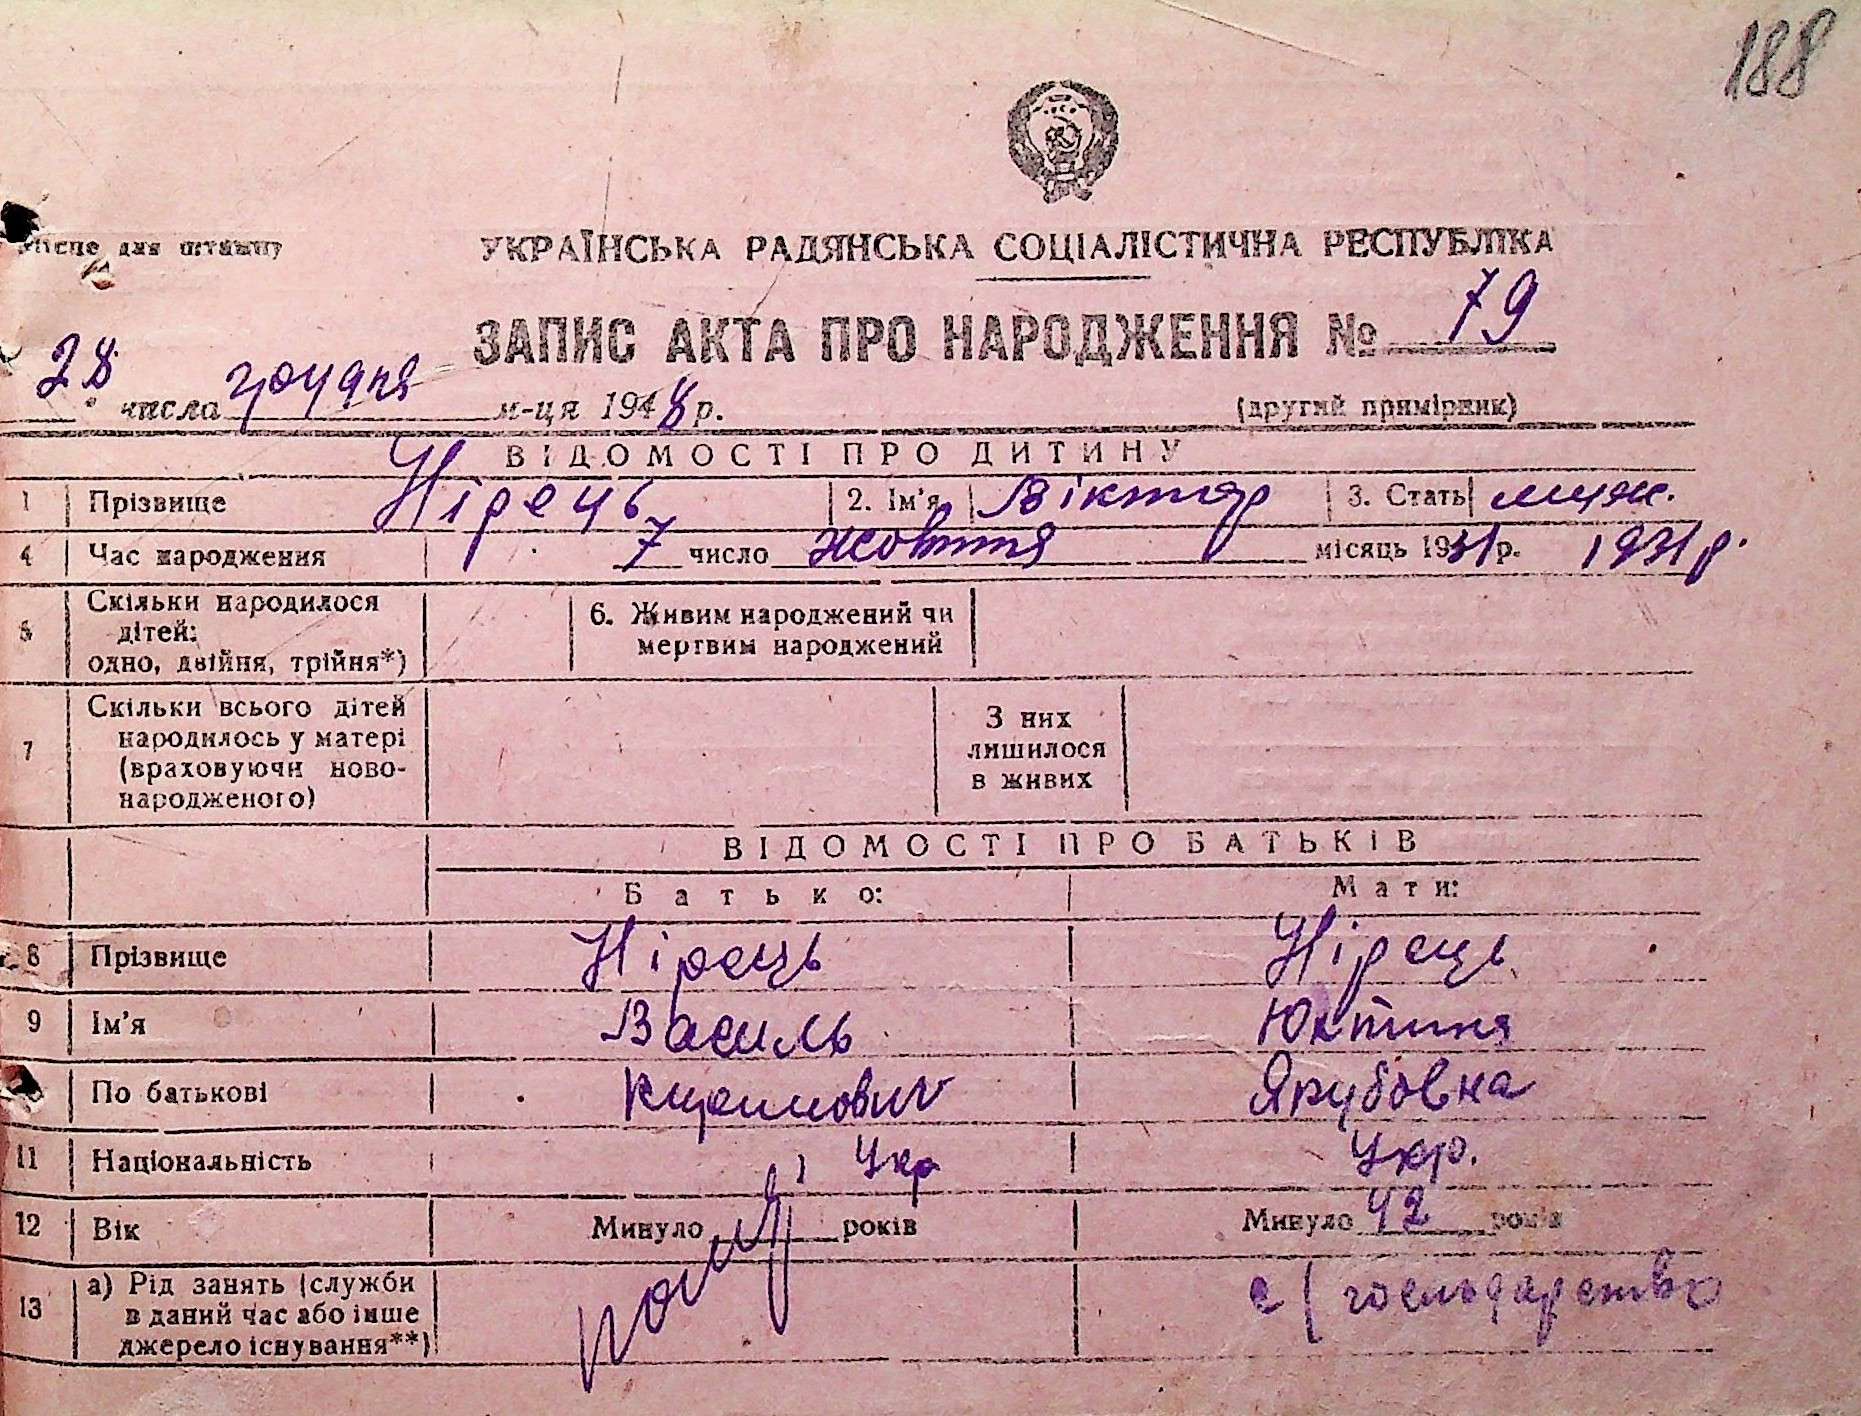 188
Місце для штампу
УКРАЇНСЬКА РАДЯНСЬКА СОЦІАЛІСТИЧНА РЕСПУБЛІКА
ЗАПИС АКТА ПРО НАРОДЖЕННЯ № 79
28 числа грудня м-ця 1948 р. (другий примірник)
ВІДОМОСТІ ПРО ДИТИНУ
1 Прізвище Нірець 2. Ім'я Віктор 3. Стать муж.
4 Час народження 7 число жовтня місяць 1931 р. 1931 р.
5 Скільки народилося дітей: одно, двійня, трійня*) 6. Живим народжений чи мертвим народжений
7 Скільки всього дітей народилось у матері (враховуючи ново-народженого) З них лишилося в живих
ВІДОМОСТІ ПРО БАТЬКІВ
Батько: Мати:
8 Прізвище Нірець Нірець
9 Ім'я Василь Юхтиня
По батькові Якубовна
11 Національність Укр Укр.
12 Вік Минуло років Минуло 42 років
13 а) Рід занять (служби в даний час або інше джерело існування**) с/господарство